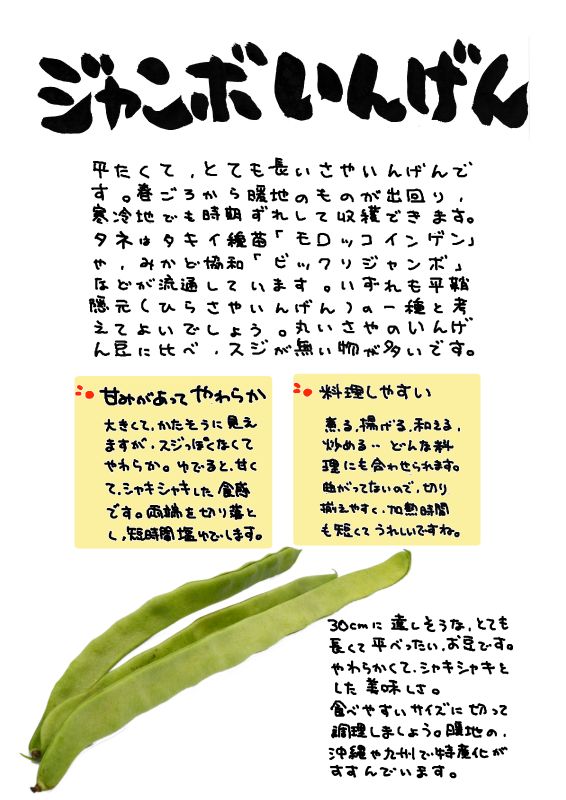 ジャンボいんげん
平たくて、とても長いさやいんげんで
す。春ごろから暖地のものが出回り、
寒冷地でも時期ずれして収穫できます。
タネはタキイ種苗「モロッコインゲン」
や、みかど協和「ビックリジャンボ」
などが流通しています。いずれも平鞘
隠元(ひらさやいんげん)の一種と考
えてよいでしょう。丸いさやのいんげ
ん豆に比べ、スジが無い物が多いです。
甘みがあってやわらか
大きくて、かたそうに見え
ますが、スジっぽくなくて
やわらか。ゆでると、甘く
て、シャキシャキした食感
です。両端を切り落と
し、短時間塩ゆでします。
料理しやすい
煮る、揚げる、和える、
炒める‥どんな料
理にも合わせられます。
曲がってないので、切り
揃えやすく、加熱時間
も短くてうれしいですね。
30cmに達しそうな、とても
長くて平べったい、お豆です。
やわらかくて、シャキシャキと
した美味しさ。
食べやすいサイズに切って
調理しましょう。暖地の、
沖縄や九州で特産化が
すすんでいます。